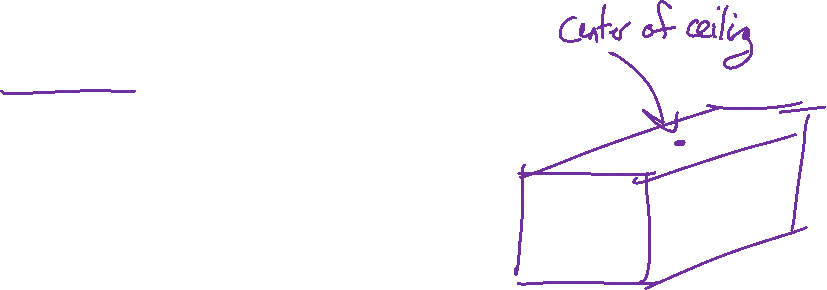 Center of ceiling